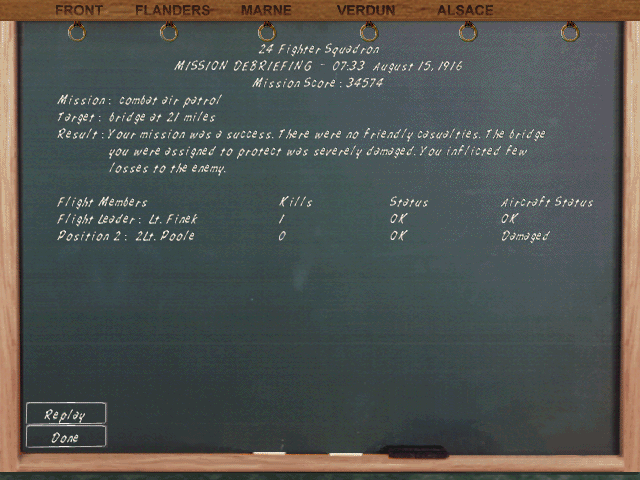 FRONT FLANDERS MARNE VERDUN ALSACE
24 Fighter Squadron
MISSION DEBRIEFING - 07:33 August 15, 1916
Mission Score : 34574
Mission : combat air patrol
Target : bridge at 21 miles
Result : Your mission was a success. There were no friendly casualties. The bridge
you were assigned to protect was severely damaged. You inflicted few
losses to the enemy.
Flight Members Kills Status Aircraft Status
Flight Leader : Lt. Finek 1 OK OK
Position 2 : 2Lt. Poole 0 OK Damaged
Replay
Done